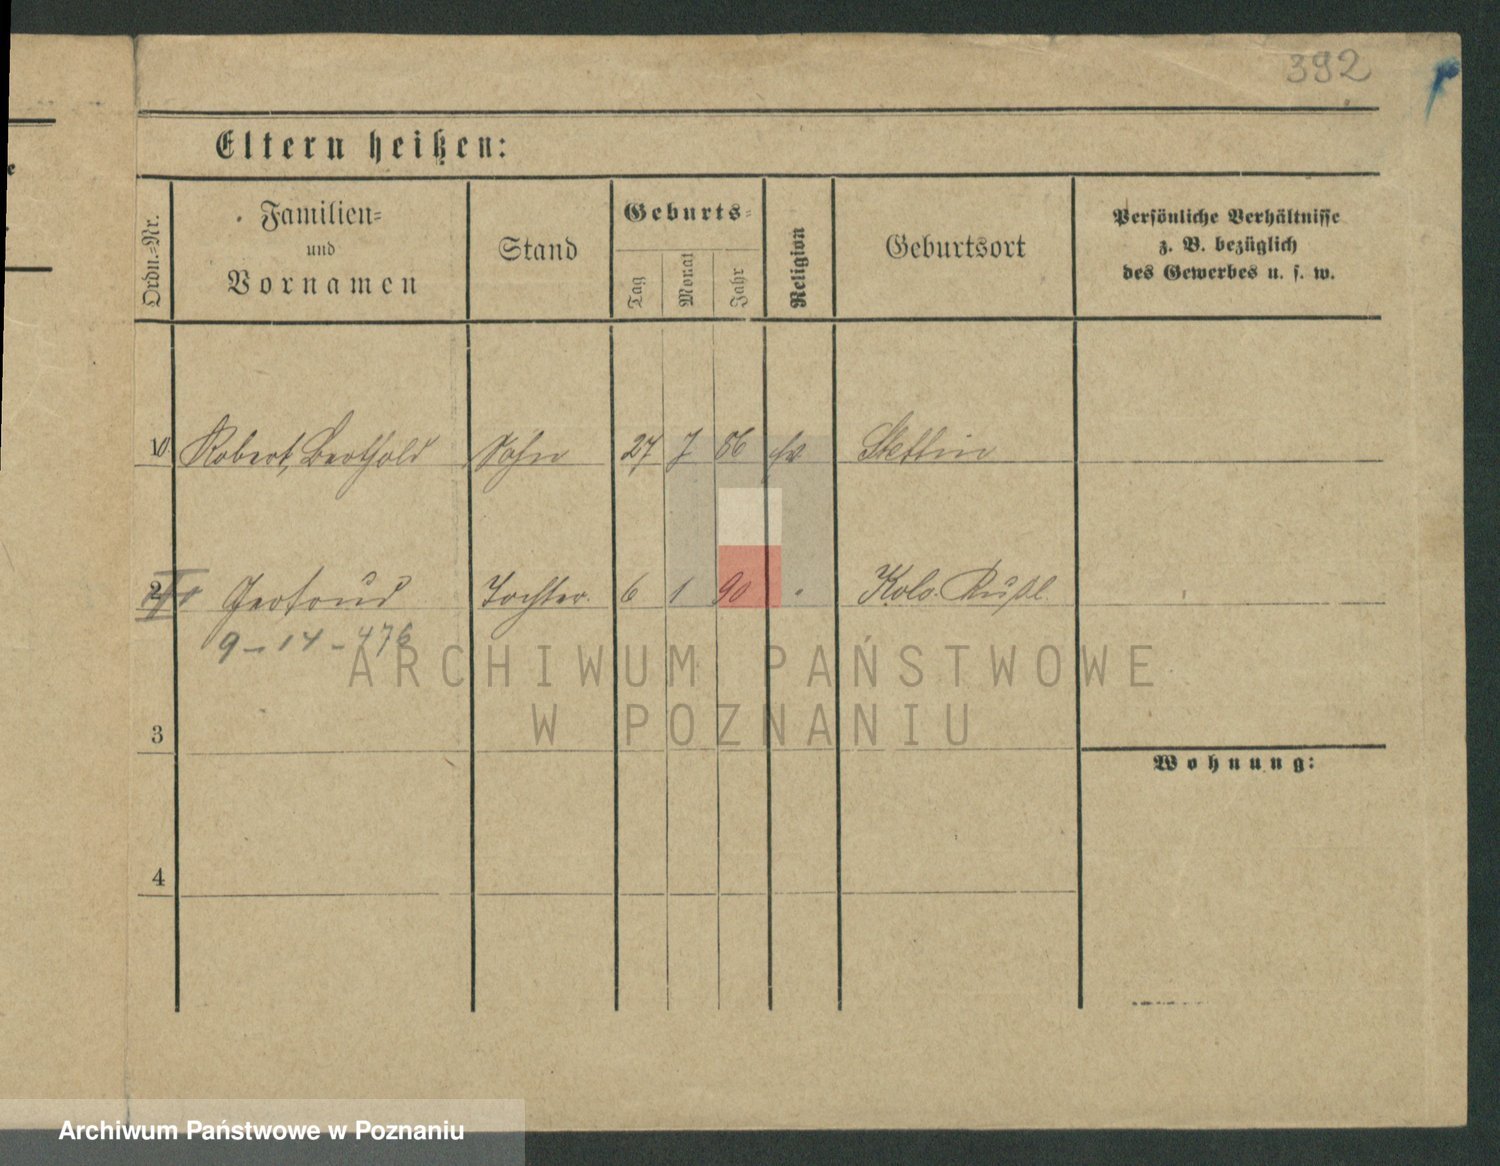 392
Eltern heißen:
Ordn.-Nr.
Familien-
und
Vornamen
Stand
Geburts-
Tag
Monat
Jahr
Religion
Geburtsort
Persönliche Verhältnisse
z. B. bezüglich
des Gewerbes u. s. w.
Robert, Berthold Sohn 27 7 86 ev Stettin
2 Gertrud Tochter. 6 1 90 " Kolo.
9-14-476
3
Wohnung:
4
ARCHIWUM PAŃSTWOWE
W POZNANIU
Archiwum Państwowe w Poznaniu